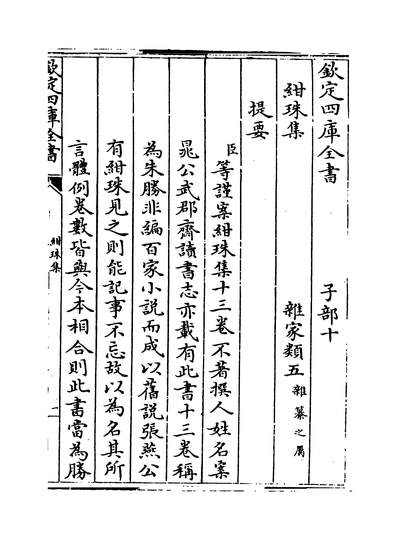 欽定四庫全書 子部十
紺珠集 雜家類五雜纂之屬
提要
臣等謹案紺珠集十三卷不著撰人姓名案
晁公武郡齋讀書志亦載有此書十三卷稱
為朱勝非編百家小説而成以舊説張燕公
有紺珠見之則能記事不忘故以為名其所
言體例卷數皆與今本相合則此書當為勝
欽定四庫全書
紺珠集
一